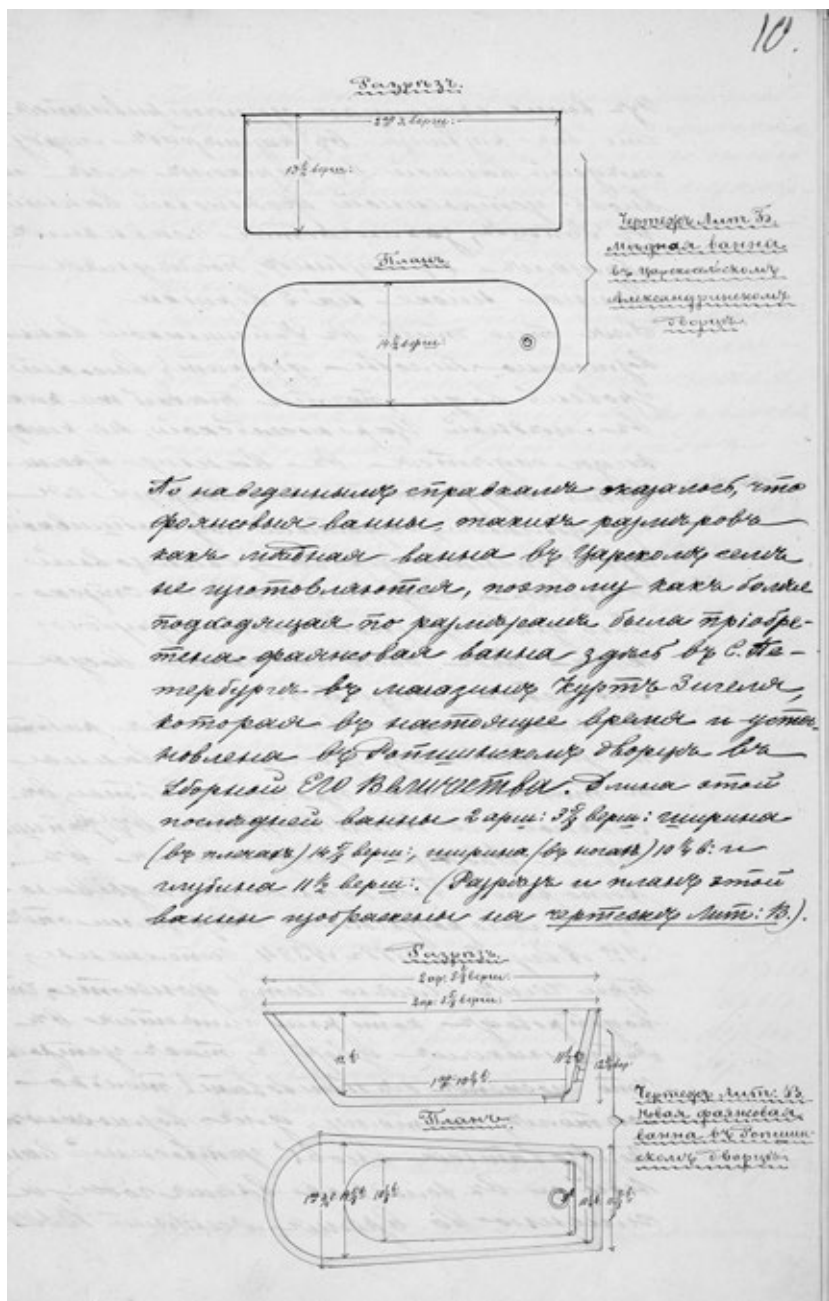 10.
Разрѣзъ.
верш:
верш:
Чертежъ Лит. Б.
Мѣдная ванна
въ Царскосельскомъ
Александринскомъ
дворцѣ.
Планъ.
верш:
По наведеннымъ справкамъ оказалось, что
фаянсовыя ванны, такихъ размѣровъ
какъ мѣдная ванна въ Царскомъ селѣ
не изготовляются, поэтому какъ болѣе
подходящая по размѣрамъ была пріобрѣ-
тена фаянсовая ванна здѣсь въ С. Пе-
тербургѣ въ магазинѣ Куртъ Зигеля,
которая въ настоящее время и уста-
новлена въ Ропшинскомъ дворцѣ въ
Уборной ЕГО Величества. Длина этой
послѣдней ванны 2 арш: верш: ширина
(въ плечахъ) верш:, ширина (въ ногахъ) в: и
глубина 11½ верш:. (Разрѣзъ и планъ этой
ванны изображены на чертежѣ Лит: В.).
Разрѣзъ.
2 ар. верш:
2 ар. верш:
Чертежъ Лит: В.
Новая фаянсовая
ванна въ Ропшин-
скомъ дворцѣ.
Планъ.